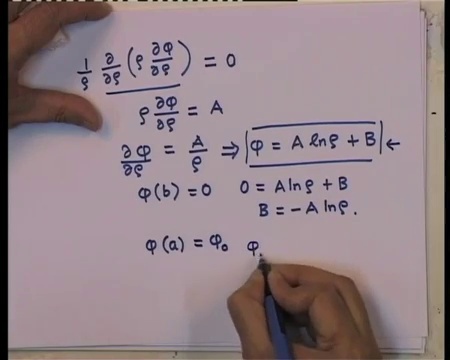 1/ρ ∂/∂ρ (ρ ∂φ/∂ρ) = 0
ρ ∂φ/∂ρ = A
∂φ/∂ρ = A/ρ ⇒ φ = A lnρ + B ←
φ(b) = 0 0 = A lnρ + B
B = -A lnρ.
φ(a) = φ₀ φ